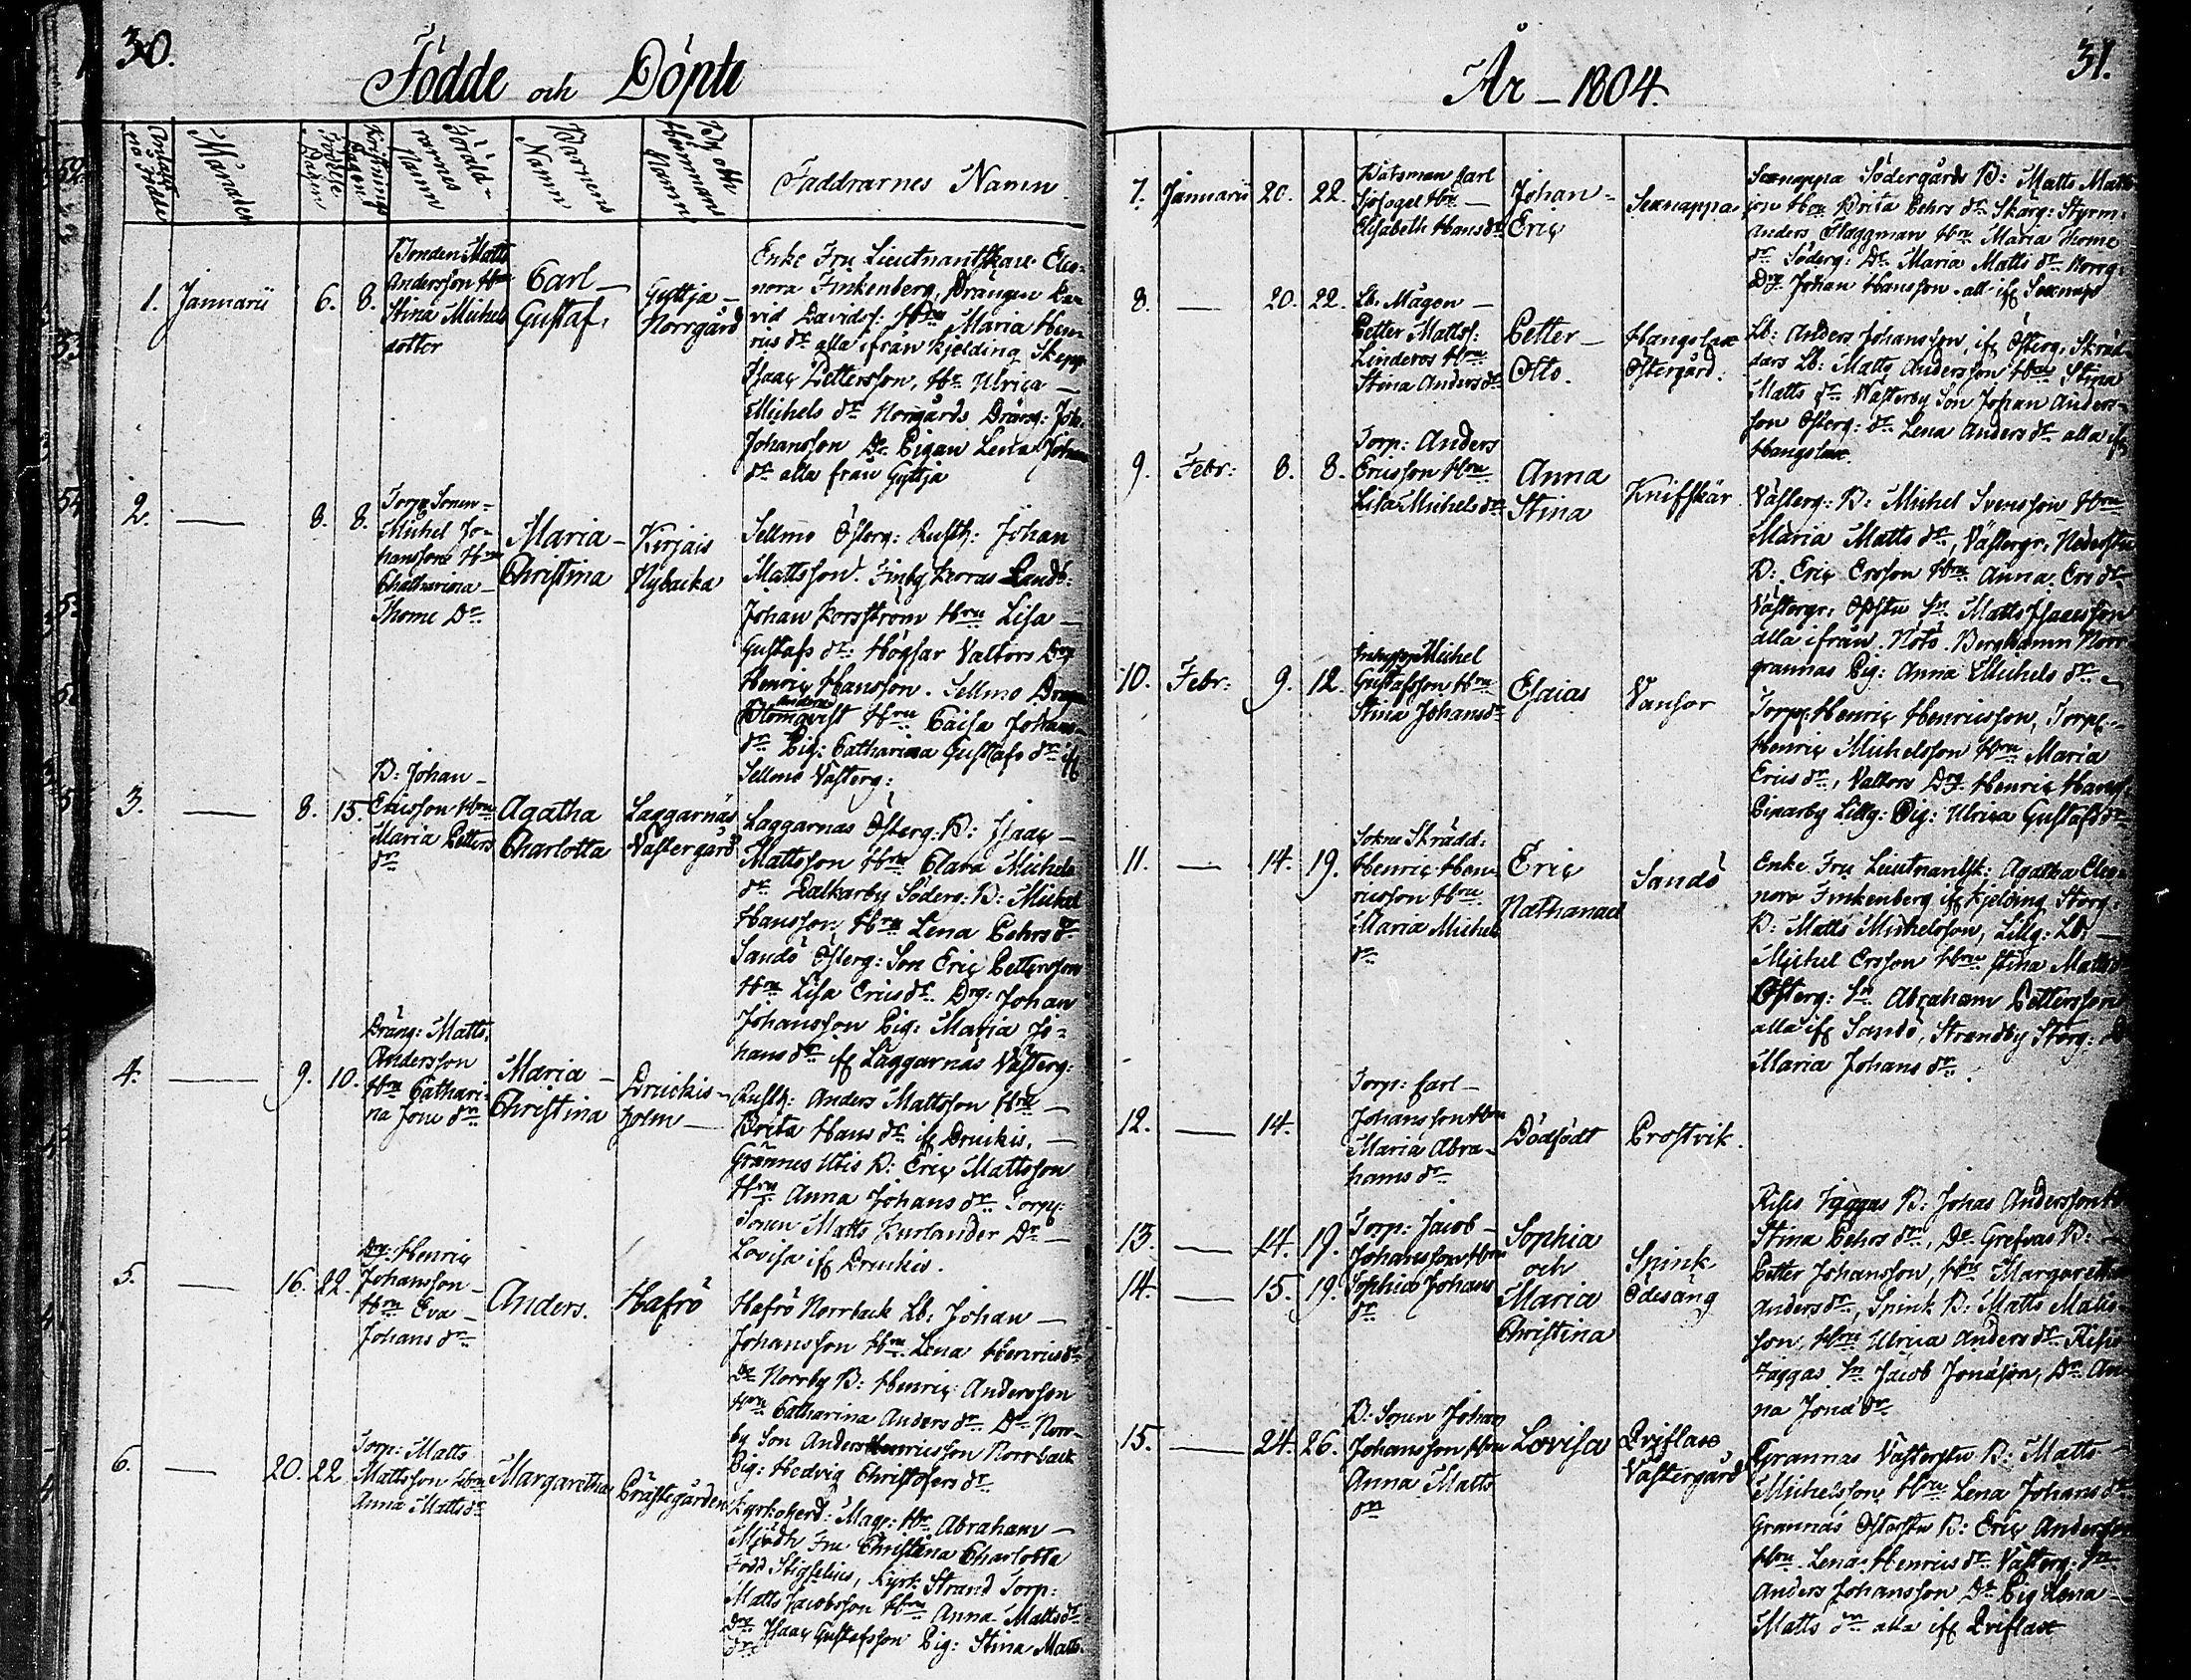 30.
Födde och Döpte
Månader
Föräldrarnes Namn
Barnens Namn
By och Hemmans Namn
Faddrarnes Namn
1. Januarii 6. 8.
Bonden Matts
Andersson Hru
Stina Michels
dotter
Carl
Gustaf
Gyttja
Norrgård
Enke Fru Lieutnantskan Eleo-
nora Finkenberg, Drängen Da-
vid Davidss: Hru Maria Hen-
rics dr alla ifrån Kjelding Skepp
Isaac Pettersson, Hr Ulrica
Michels dr Norrgårds Dräng: Joh.
Johansson De Pigan Lena Johan
dr alla från Gyttja
2. — 8. 8.
Torp Sonen
Michel Jo-
hansson Hru
Chatharina
Thome Dr
Maria
Christina
Kirjais
Nybacka
Sellmo Österg: Rusth: Johan
Mattsson. Finby Korras Landb:
Johan Korsström Hru Lisa
Gustafs dr: Högsar Valtors Drg
Henric Hansson. Sellmo Dragon
anders
Blomqvist Hru Caisa Johans
dr Pig: Catharina Gustafs dr if
Sellmo Västerg:
3. — 8. 15.
B: Johan
Ericsson Hru
Maria Petters
dr
Agatha
Charlotta
Laggarnäs
Västergård
Laggarnäs Österg: B: Isaac
Mattsson Hru Clara Michels
dr Dalkarby Söderg: B: Michel
Hansson, Hru Lena Pehrs dr
Sandö Österg: Son Eric Pettersson
Hru Lisa Erics dr. Drg: Johan
Johansson Pig: Maria Jo-
hans dr if Laggarnäs Västerg:
4. — 9. 10.
Dräng: Matts
Andersson
Hru Cathari-
na Jone dr
Maria
Christina
Druckis-
holm
Rusth: Anders Mattsson Hru
Brita Hans dr if Druckis,
Grännes Utis B: Eric Mattsson
Hru Anna Johans dr Torp:
Sonen Matts Kurlander Dr
Lovisa if Druckis.
5. — 16. 22.
Drg: Henric
Johansson
Hru Eva
Johans dr
Anders.
Hafrö
Hafrö Norrback Lb: Johan
Johansson Hru Lena Henrics dr
De Norrby B: Henric Andersson
Hru Catharina Anders dr De Norr-
by Son Anders Henricsson Norrback
Pig: Hedvig Christofers dr
6. — 20. 22.
Torp: Matts
Mattsson Hru
Anna Matts dr
Margaretha
Prästegården
Kyrkoherd: Mag: Hr Abraham
Mjödh Fru Christina Charlotta
Född Stigselius, Kyrk: Strand Torp:
Matts Jacobsson Hru Anna Matts dr
Drg Isaac Gustafsson Pig: Stina Matts
dr
År – 1804.
31.
7. Januarii 20. 22.
Båtsman Carl
Sjöfogel Hru
Elisabeth Hans dr
Johan
Eric
Sexnappa
Sexnappa Södergårds B: Matts Matts-
son Hru Brita Pehrs dr Skärg: Styrm:
Anders Flaggman Hru Maria Thome
dr Söderg: Dr Maria Matts dr Norrg:
Drg Johan Hansson. all if Sexnap
8. — 20. 22.
Lb. Mågen
Petter Mattss:
Linderos Hru
Stina Anders dr
Petter
Otto.
Hangslax
Östergård.
Lb: Anders Johansson, if Österg: Skräd-
dars Lb: Matts Andersson Hru Stina
Matts dr Västerby Son Johan Anders-
son Österg: dr Lena Anders dr alla if
Hangslax.
9. Febr: 8. 8.
Torp: Anders
Ericsson Hru
Lisa Michels dr
Anna
Stina
Knifskär
Västerg: B: Michel Svensson Hru
Maria Matts dr, Västergr: Nederstu
B: Eric Ersson Hru Anna Ers dr
Västergr: Öfstu Sn Matts Isaacsson
alla ifrån Nötö Berghamn Norr
grannas Pig: Anna Michels dr
10. Febr: 9. 12.
Michel
Gustafsson Hru
Stina Johans dr
Esaias
Vansor
Torp: Henric Henricsson, Torp:
Henric Michelsson Hru Maria
Erics dr, Valtors Drg Henric Hanss:
Biparby Lillg: Pig: Ulrica Gustafs dr
11. — 14. 19.
Sokne Skrädd:
Henric Hen-
ricsson Hru
Maria Michels
dr
Eric
Nathanael
Sandö
Enke Fru Lieutnantsk: Agatha Eleo-
nora Finkenberg if Kjelding Storg:
B: Matts Michelsson, Lillg: Lb:
Michel Ersson Hru Stina Matts dr
Österg: Sn Abraham Pettersson
alla if Sandö, Strandby Storg: Dr
Maria Johans dr.
12. — 14.
Torp: Carl
Johansson Hru
Maria Abra-
hams dr
Dödfödt
Prostvik.
13. — 14. 19.
14. — 15. 19.
Torp: Jacob
Johansson Hru
Sophia Johans
dr
Sophia
och
Maria
Christina
Spink
Ödesäng
Risis Jäggas B: Johas Andersson H
Stina Pehrs dr, De Grefvas B:
Petter Johansson, Hru Margaretha
Anders dr, Spink B: Matts Matts-
son, Hru Ulrica Anders dr Risis
Jäggas Sn Jacob Jonasson, Dr An-
na Jona dr
15. — 24. 26.
B: Sonen Johan
Johansson Hru
Anna Matts
dr
Lovisa
Qviflax
Västergård
Grannas Västerstu B: Matts
Michelsson Hru Lena Johans dr
Grannas Österstu B: Eric Andersson
Hru Lena Henrics dr Västerg: Sn
Anders Johansson De Pig Lena
Matts dr alla if Qviflax